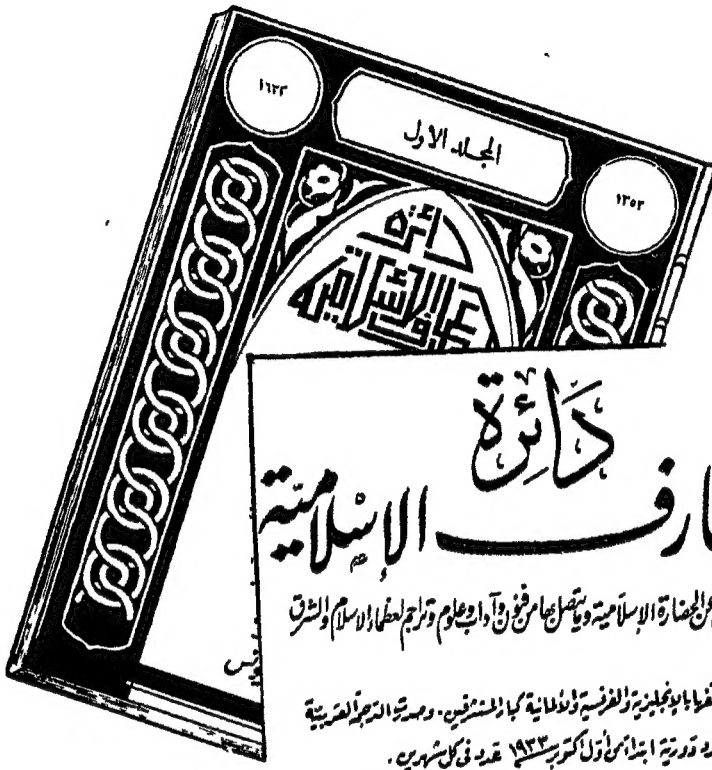 ١٦٣٣
المجلد الأول
١٣٥٢
دائرة
المعارف الإسلامية
دَائِرة
ارف الإسْلاميّة
عن الحضارة الإسلامية وما يتصل بها من فنون وآداب وعلوم وتراجم لعظماء الإسلام والشرق
بالإنجليزية والفرنسية والألمانية كبار المستشرقين. وصدرت الترجمة العربية
دورية ابتداءً من أول أكتوبر ١٩٣٣ عدد في كل شهرين.